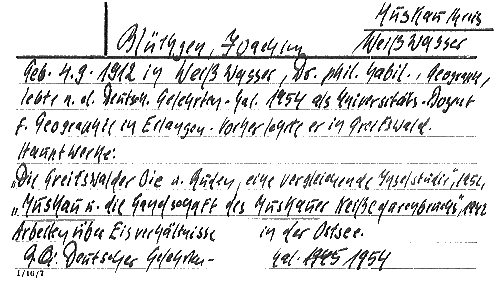 Muskau Kreis
Blüthgen, Joachim Weißwasser
Geb. 4.9.1912 in Weißwasser, Dr. phil. habil., Geograph,
lebte n. d. Deutsch. Gelehrten-Kal. 1954 als Universitäts-Dozent
f. Geographie in Erlangen. Vorher lehrte er in Greifswald.
Hauptwerke:
„Die Greifswalder Oie u. Ruden, eine vergleichende Inselstudie", 1954
„Muskau u. die Landschaft des Muskauer Neißegarenbruchs", 1942
Arbeiten über Eisverhältnisse in der Ostsee.
Deutscher Gelehrten- Kal. 1954
1/10/7